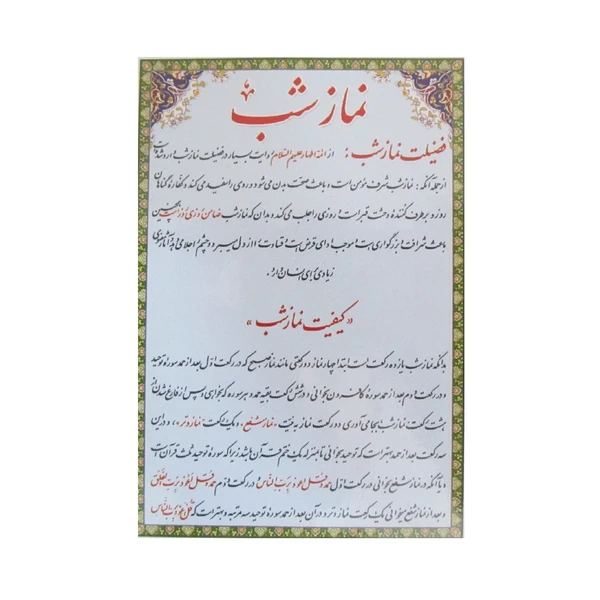 نماز شب
فضیلت نماز شب: از ائمه اطهار علیهم السلام روایت بسیار در فضیلت نماز شب وارد شده
از جمله آنکه: نماز شب شرف مؤمن است و باعث صحت بدن می شود و روی را سفید می کند و کفاره گناهان
روز و برطرف کننده وحشت قبر است و روزی را جلب می کند و بدان که نماز شب ضامن روزی روز است همچنین
باعث شرافت و بزرگواری است موجب ادای قرض است و قساوت را از دل میبرد و چشم را جلا می دهد و آثار
زیادی برای انسان دارد.
«کیفیت نماز شب»
بدانکه نماز شب یازده رکعت است ابتدا چهار نماز دو رکعتی مانند نماز صبح که در رکعت اول بعد از حمد سوره توحید
و در رکعت دوم بعد از حمد سوره کافرون بخوانی و در شش رکعت بقیه حمد و هر سوره که بخواهی و پس از فارغ شدن از
هشت رکعت نماز شب بجا می آوری دو رکعت نماز به نیت «نماز شفع» و یک رکعت «نماز وتر» و در این
سه رکعت بعد از حمد بهتر است که توحید بخوانی تا بمنزله یک ختم قرآن باشد زیرا که سوره توحید ثلث قرآن است
و یا آنکه در نماز شفع بخوانی در رکعت اول حمد و قل اعوذ برب الناس و در رکعت دوم حمد و قل اعوذ برب الفلق
و بعد از نماز شفع میخوانی یک رکعت نماز وتر و در آن بعد از حمد سوره توحید سه مرتبه و بهتر است که قل اعوذ برب الناس